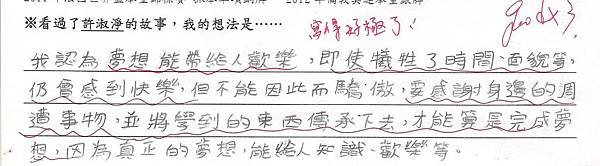 ※看過了許淑淨的故事，我的想法是……
寫得好極了！
我認為夢想能帶給人歡樂，即使犧牲了時間、面貌等，
仍會感到快樂，但不能因此而驕傲，要感謝身邊的周
遭事物，並將學到的東西傳承下去，才能算是完成夢
想，因為真正的夢想，能給人知識、歡樂等。